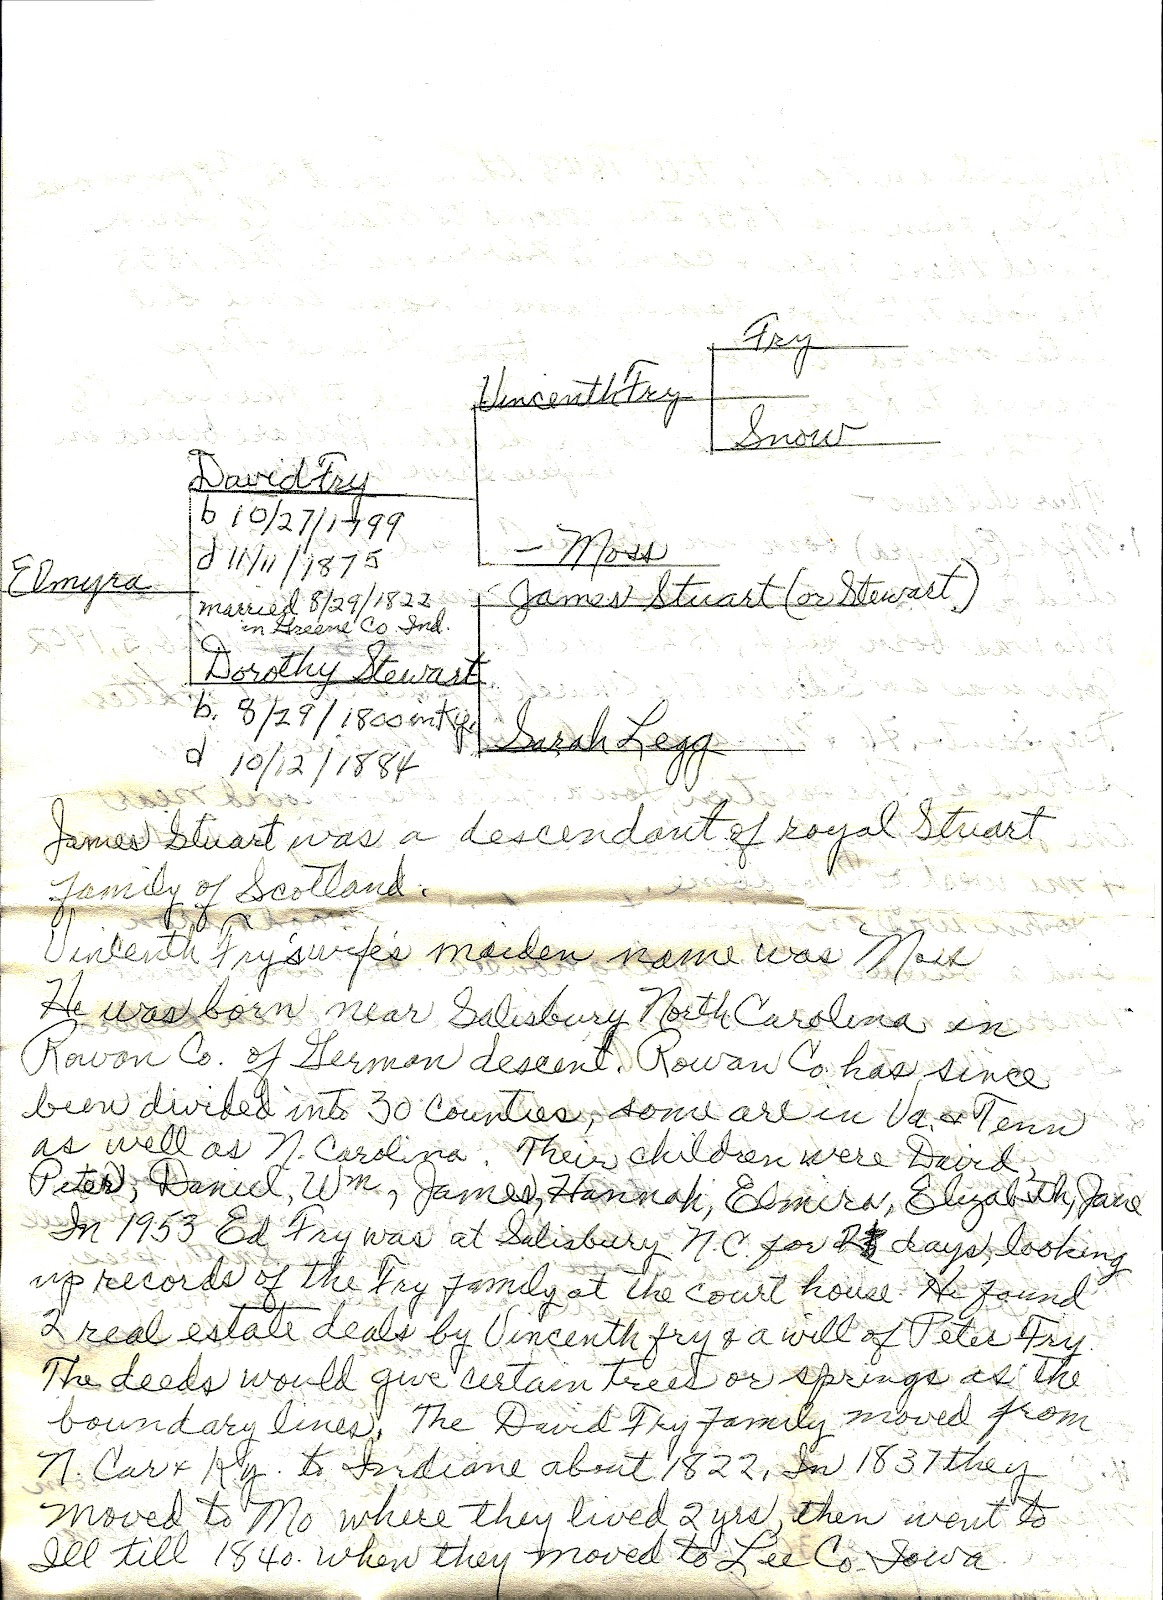 Fry
Vincenth Fry
Snow
David Fry
b 10/27/1799
d 11/11/1875
— Moss
Elmyra
James Stuart (or Stewart)
married 8/29/1822
in Greene Co Ind.
Dorothy Stewart
b. 8/29/1800 in Ky.
Sarah Legg
d 10/12/1884
James Stuart was a descendant of royal Stuart
family of Scotland.
Vincenth Fry's wife's maiden name was Moss
He was born near Salisbury North Carolina in
Rowan Co. of German descent. Rowan Co. has since
been divided into 30 counties, some are in Va. & Tenn
as well as N. Carolina. Their children were David,
Peter, Daniel, Wm, James, Hannah, Elmira, Elizabith, Jane
In 1953 Ed Fry was at Salisbury N.C. for days, looking
up records of the Fry family at the court house. He found
2 real estate deals by Vincenth fry & a will of Peter Fry.
The deeds would give certain trees or springs as the
boundary lines. The David Fry family moved from
N. Car & Ky. to Indiana about 1822. In 1837 they
moved to Mo where they lived 2 yrs, then went to
Ill till 1840. when they moved to Lee Co. Iowa